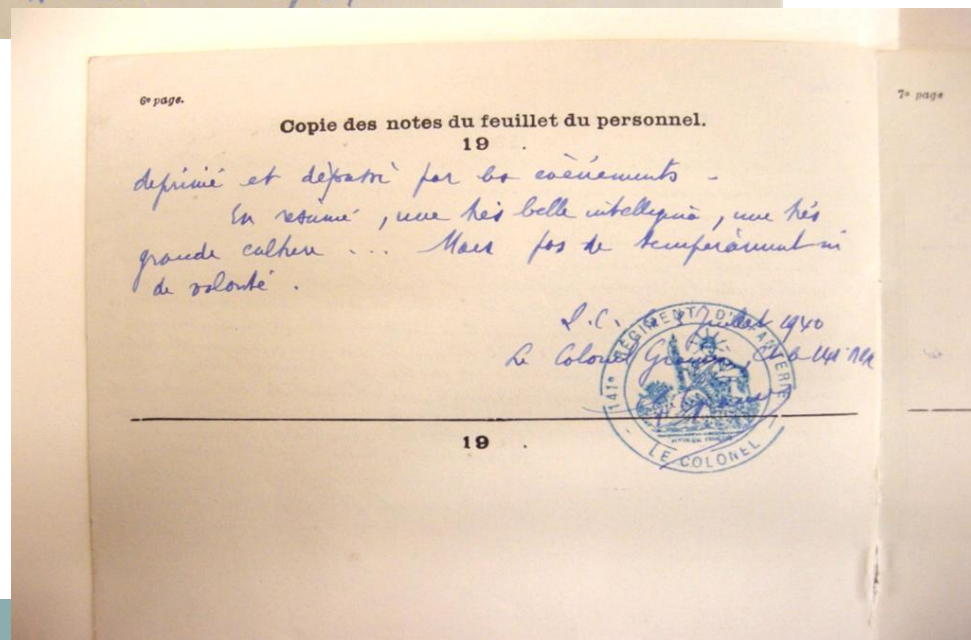 6e page.
7e page
Copie des notes du feuillet du personnel.
19 .
deprimé et dépassé par les évènements -
En résumé, une très belle intelligence, une très
grande culture ... Mais pas de tempérament ni
de volonté.
Juillet 1940
Le Colonel
141e RÉGIMENT D'INFANTERIE
LE COLONEL
19 .